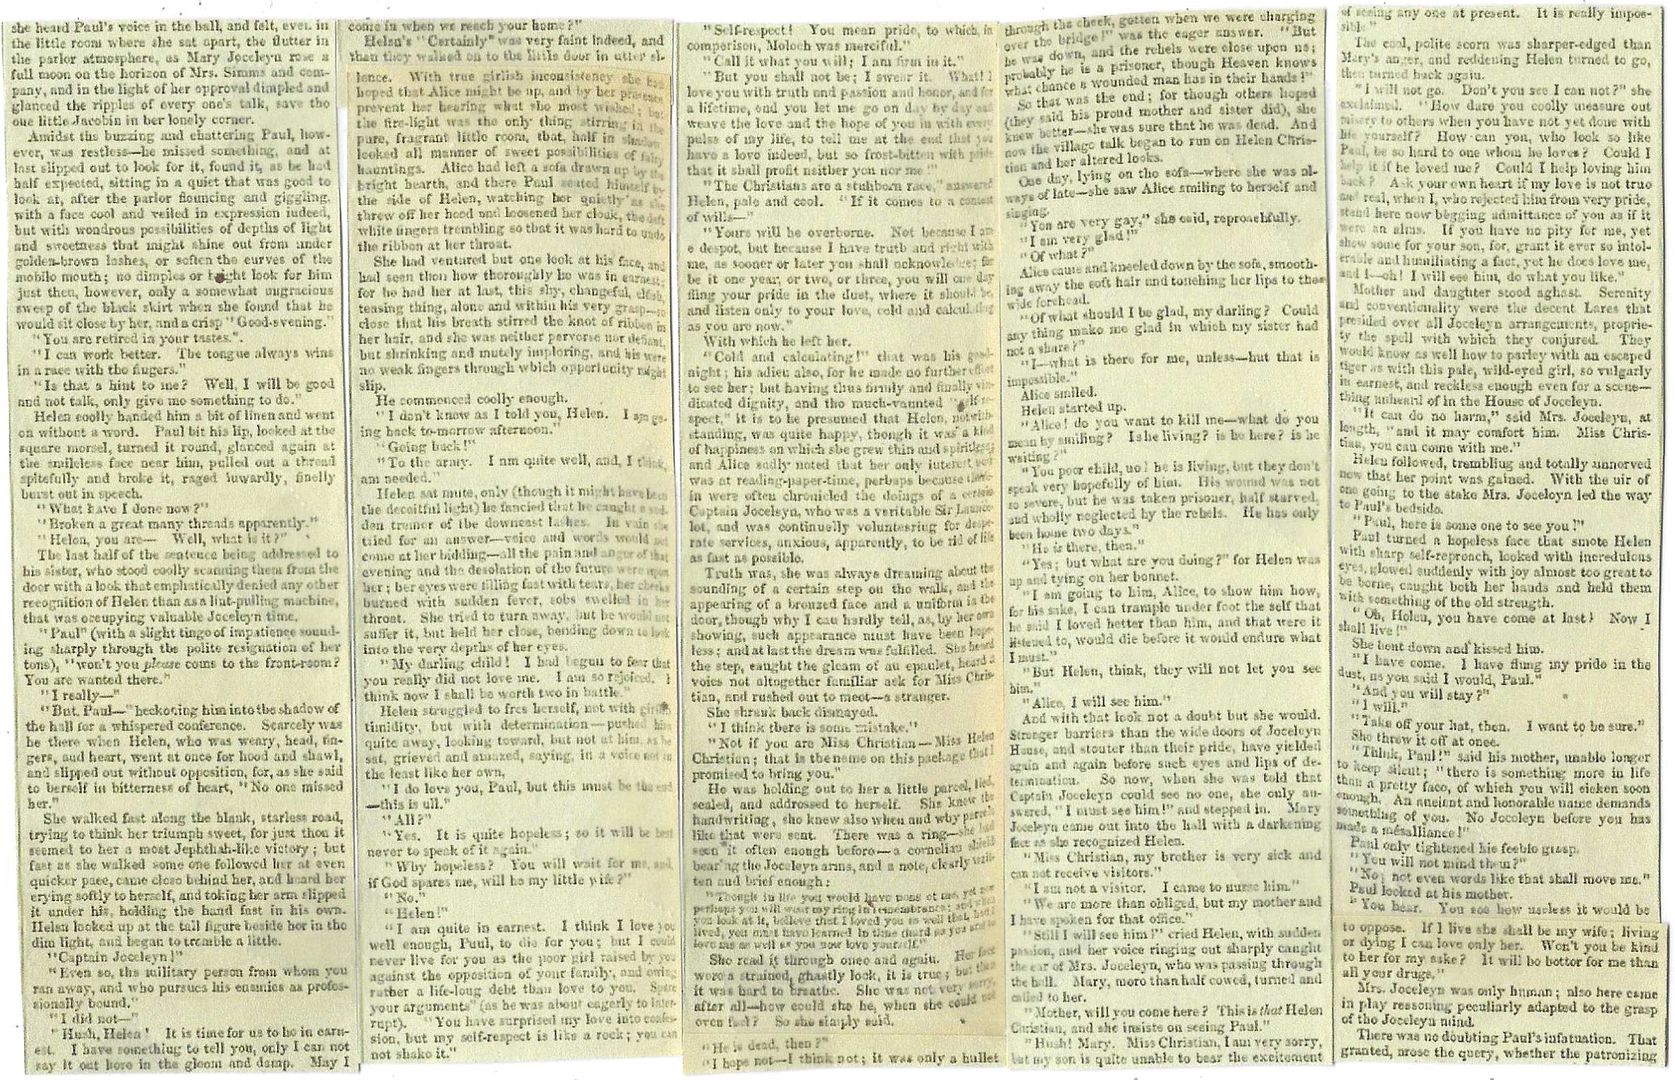 she heard Paul's voice in the hall, and felt, even in
the little room where she sat apart, the flutter in
the parlor atmosphere, as Mary Joceleyn rose a
full moon on the horizon of Mrs. Simms and com-
pany, and in the light of her approval dimpled and
glanced the ripples of every one's talk, save the
one little Jacobin in her lonely corner.
Amidst the buzzing and chattering Paul, how-
ever, was restless—he missed something, and at
last slipped out to look for it, found it, as he had
half expected, sitting in a quiet that was good to
look at, after the parlor flouncing and giggling,
with a face cool and veiled in expression indeed,
but with wondrous possibilities of depths of light
and sweetness that might shine out from under
golden-brown lashes, or soften the curves of the
mobile mouth; no dimples or bright look for him
just then, however, only a somewhat ungracious
sweep of the black skirt when she found that he
would sit close by her, and a crisp "Good-evening."
"You are retired in your tastes."
"I can work better. The tongue always wins
in a race with the fingers."
"Is that a hint to me? Well, I will be good
and not talk, only give me something to do."
Helen coolly handed him a bit of linen and went
on without a word. Paul bit his lip, looked at the
square morsel, turned it round, glanced again at
the smileless face near him, pulled out a thread
spitefully and broke it, raged inwardly, finally
burst out in speech.
"What have I done now?"
"Broken a great many threads apparently."
"Helen, you are— Well, what is it?"
The last half of the sentence being addressed to
his sister, who stood coolly scanning them from the
door with a look that emphatically denied any other
recognition of Helen than as a lint-pulling machine,
that was occupying valuable Joceleyn time.
"Paul" (with a slight tinge of impatience sound-
ing sharply through the polite resignation of her
tons), "won't you please come to the front-room?
You are wanted there."
"I really—"
"But, Paul—" beckoning him into the shadow of
the hall for a whispered conference. Scarcely was
he there when Helen, who was weary, head, fin-
gers, and heart, went at once for hood and shawl,
and slipped out without opposition, for, as she said
to herself in bitterness of heart, "No one missed
her."
She walked fast along the blank, starless road,
trying to think her triumph sweet, for just then it
seemed to her a most Jephthah-like victory; but
fast as she walked some one followed her at even
quicker pace, came close behind her, and heard her
crying softly to herself, and taking her arm slipped
it under his, holding the hand fast in his own.
Helen looked up at the tall figure beside her in the
dim light, and began to tremble a little.
"Captain Joceleyn!"
"Even so, the military person from whom you
ran away, and who pursues his enemies as profes-
sionally bound."
"I did not—"
"Hush, Helen! It is time for us to be in earn-
est. I have something to tell you, only I can not
say it out here in the gloom and damp. May I
come in when we reach your home?"
Helen's "Certainly" was very faint indeed, and
then they walked on to the little door in utter si-
lence. With true girlish inconsistency she had
hoped that Alice might be up, and by her presence
prevent her hearing what she most wished; but
the fire-light was the only thing stirring in the
pure, fragrant little room, that, half in shadow
looked all manner of sweet possibilities of fairy
hauntings. Alice had left a sofa drawn up by the
bright hearth, and there Paul seated himself by
the side of Helen, watching her quietly as she
threw off her hood and loosened her cloak, the deft
white fingers trembling so that it was hard to undo
the ribbon at her throat.
She had ventured but one look at his face, and
had seen then how thoroughly he was in earnest;
for he had her at last, this shy, changeful, elfish,
teasing thing, alone and within his very grasp—so
close that his breath stirred the knot of ribbon in
her hair, and she was neither perverse nor defiant,
but shrinking and mutely imploring, and his were
no weak fingers through which opportunity might
slip.
He commenced coolly enough.
"I don't know as I told you, Helen. I am go-
ing back to-morrow afternoon."
"Going back!"
"To the army. I am quite well, and, I think,
am needed."
Helen sat mute, only (though it might have been
the deceitful light) he fancied that he caught a sud-
den tremor of the downcast lashes. In vain she
tried for an answer—voice and words would not
come at her bidding—all the pain and anger of that
evening and the desolation of the future were upon
her; her eyes were filling fast with tears, her cheeks
burned with sudden fever, sobs swelled in her
throat. She tried to turn away, but he would not
suffer it, but held her close, bending down to look
into the very depths of her eyes.
"My darling child! I had begun to fear that
you really did not love me. I am so rejoiced. I
think now I shall be worth two in battle."
Helen struggled to free herself, not with girlish
timidity, but with determination—pushed him
quite away, looking toward, but not at him, as he
sat, grieved and amazed, saying, in a voice not in
the least like her own,
"I do love you, Paul, but this must be the end
—this is all."
"All?"
"Yes. It is quite hopeless; so it will be best
never to speak of it again."
"Why hopeless? You will wait for me, and,
if God spares me, will be my little wife?"
"No."
"Helen!"
"I am quite in earnest. I think I love you
well enough, Paul, to die for you; but I could
never live for you as the poor girl raised by you
against the opposition of your family, and owing
rather a life-long debt than love to you. Spare
your arguments" (as he was about eagerly to inter-
rupt). "You have surprised my love into confes-
sion, but my self-respect is like a rock; you can
not shake it."
"Self-respect! You mean pride, to which, in
comparison, Moloch was merciful."
"Call it what you will; I am firm in it."
"But you shall not be; I swear it. What! I
love you with truth and passion and honor, and for
a lifetime, and you let me go on day by day and
weave the love and the hope of you in with every
pulse of my life, to tell me at the end that you
have a love indeed, but so frost-bitten with pride
that it shall profit neither you nor me"
"The Christians are a stubborn race," answered
Helen, pale and cool. "If it comes to a contest
of wills—"
"Yours will be overborne. Not because I am
a despot, but because I have truth and right with
me, as sooner or later you shall acknowledge; for
be it one year, or two, or three, you will one day
fling your pride in the dust, where it should be,
and listen only to your love, cold and calculating
as you are now."
With which he left her.
"Cold and calculating!" that was his good-
night; his adieu also, for he made no further effort
to see her; but having thus firmly and finally vin-
dicated dignity, and the much-vaunted "self-re-
spect," it is to be presumed that Helen, notwith-
standing, was quite happy, though it was a kind
of happiness on which she grew thin and spiritless;
and Alice sadly noted that her only interest now
was at reading-paper-time, perhaps because there-
in were often chronicled the doings of a certain
Captain Joceleyn, who was a veritable Sir Launce-
lot, and was continually volunteering for despe-
rate services, anxious, apparently, to be rid of life
as fast as possible.
Truth was, she was always dreaming about the
sounding of a certain step on the walk, and the
appearing of a bronzed face and a uniform in the
door, though why I can hardly tell, as, by her own
showing, such appearance must have been hope-
less; and at last the dream was fulfilled. She heard
the step, caught the gleam of an epaulet, heard a
voice not altogether familiar ask for Miss Chris-
tian, and rushed out to meet—a stranger.
She shrank back dismayed.
"I think there is some mistake."
"Not if you are Miss Christian—Miss Helen
Christian; that is the name on this package that I
promised to bring you."
He was holding out to her a little parcel, tied,
sealed, and addressed to herself. She knew the
handwriting, she knew also when and why parcels
like that were sent. There was a ring—she had
seen it often enough before—a cornelian shield
bearing the Joceleyn arms, and a note, clearly writ-
ten and brief enough:
"Though in life you would have none of me, yet now
perhaps you will wear my ring in remembrance; and when
you look at it, believe that I loved you so well that, had I
lived, you must have learned in time (hard as you are) to
love me as well as you now love yourself."
She read it through once and again. Her face
wore a strained, ghastly look, it is true; but then
it was hard to breathe. She was not very sorry,
after all—how could she be, when she could not
even feel? So she simply said,
"He is dead, then?"
"I hope not—I think not; it was only a bullet
through the cheek, gotten when we were charging
over the bridge!" was the eager answer. "But
he was down, and the rebels were close upon us;
probably he is a prisoner, though Heaven knows
what chance a wounded man has in their hands!"
So that was the end; for though others hoped
(they said his proud mother and sister did), she
knew better—she was sure that he was dead. And
now the village talk began to run on Helen Chris-
tian and her altered looks.
One day, lying on the sofa—where she was al-
ways of late—she saw Alice smiling to herself and
singing.
"You are very gay," she said, reproachfully.
"I am very glad!"
"Of what?"
Alice came and kneeled down by the sofa, smooth-
ing away the soft hair and touching her lips to the
wide forehead.
"Of what should I be glad, my darling? Could
any thing make me glad in which my sister had
not a share?"
"I—what is there for me, unless—but that is
impossible."
Alice smiled.
Helen started up.
"Alice! do you want to kill me—what do you
mean by smiling? Is he living? is he here? is he
waiting?"
"You poor child, no! he is living, but they don't
speak very hopefully of him. His wound was not
so severe, but he was taken prisoner, half starved,
and wholly neglected by the rebels. He has only
been home two days."
"He is there, then."
"Yes; but what are you doing?" for Helen was
up and tying on her bonnet.
"I am going to him, Alice, to show him how,
for his sake, I can trample under foot the self that
he said I loved better than him, and that were it
listened to, would die before it would endure what
I must."
"But Helen, think, they will not let you see
him."
"Alice, I will see him."
And with that look not a doubt but she would.
Stronger barriers than the wide doors of Joceleyn
House, and stouter than their pride, have yielded
again and again before such eyes and lips of de-
termination. So now, when she was told that
Captain Joceleyn could see no one, she only an-
swered, "I must see him!" and stepped in. Mary
Joceleyn came out into the hall with a darkening
face as she recognized Helen.
"Miss Christian, my brother is very sick and
can not receive visitors."
"I am not a visitor. I came to nurse him."
"We are more than obliged, but my mother and
I have spoken for that office."
"Still I will see him!" cried Helen, with sudden
passion, and her voice ringing out sharply caught
the ear of Mrs. Joceleyn, who was passing through
the hall. Mary, more than half cowed, turned and
called to her.
"Mother, will you come here? This is that Helen
Christian, and she insists on seeing Paul."
"Hush! Mary. Miss Christian, I am very sorry,
but my son is quite unable to bear the excitement
of seeing any one at present. It is really impos-
sible."
The cool, polite scorn was sharper-edged than
Mary's anger, and reddening Helen turned to go,
then turned back again.
"I will not go. Don't you see I can not?" she
exclaimed. "How dare you coolly measure out
misery to others when you have not yet done with
life yourself? How can you, who look so like
Paul, be so hard to one whom he loves? Could I
help it if he loved me? Could I help loving him
back? Ask your own heart if my love is not true
and real, when I, who rejected him from very pride,
stand here now begging admittance of you as if it
were an alms. If you have no pity for me, yet
show some for your son, for, grant it ever so intol-
erable and humiliating a fact, yet he does love me,
and I—oh! I will see him, do what you like."
Mother and daughter stood aghast. Serenity
and conventionality were the decent Lares that
presided over all Joceleyn arrangements, proprie-
ty the spell with which they conjured. They
would know as well how to parley with an escaped
tiger as with this pale, wild-eyed girl, so vulgarly
in earnest, and reckless enough even for a scene—
thing unheard of in the House of Joceleyn.
"It can do no harm," said Mrs. Joceleyn, at
length, "and it may comfort him. Miss Chris-
tian, you can come with me."
Helen followed, trembling and totally unnerved
now that her point was gained. With the air of
one going to the stake Mrs. Joceleyn led the way
to Paul's bedside.
"Paul, here is some one to see you!"
Paul turned a hopeless face that smote Helen
with sharp self-reproach, looked with incredulous
eyes, glowed suddenly with joy almost too great to
be borne, caught both her hands and held them
with something of the old strength.
"Oh, Helen, you have come at last! Now I
shall live!"
She bent down and kissed him.
"I have come. I have flung my pride in the
dust, as you said I would, Paul."
"And you will stay?"
"I will."
"Take off your hat, then. I want to be sure."
She threw it off at once.
"Think, Paul!" said his mother, unable longer
to keep silent; "there is something more in life
than a pretty face, of which you will sicken soon
enough. An ancient and honorable name demands
something of you. No Joceleyn before you has
made a mésalliance!"
Paul only tightened his feeble grasp.
"You will not mind them?"
"No; not even words like that shall move me."
Paul looked at his mother.
"You hear. You see how useless it would be
to oppose. If I live she shall be my wife; living
or dying I can love only her. Won't you be kind
to her for my sake? It will be better for me than
all your drugs."
Mrs. Joceleyn was only human; also here came
in play reasoning peculiarly adapted to the grasp
of the Joceleyn mind.
There was no doubting Paul's infatuation. That
granted, arose the query, whether the patronizing